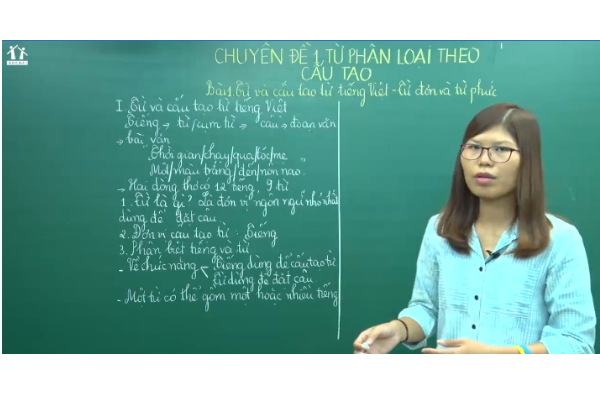 CHUYÊN ĐỀ 1. TỪ PHÂN LOẠI THEO
CẤU TẠO
Bài 1. Từ và cấu tạo từ tiếng Việt - từ đơn và từ phức
I. Từ và cấu tạo từ tiếng Việt
Tiếng → từ/cụm từ → câu → đoạn văn
→ bài văn
Thời gian/chạy/qua/tóc/mẹ
Một/màu trắng/đến/nôn nao.
→ Hai dòng thơ có 12 tiếng, 9 từ
1. Từ là gì? Là đơn vị ngôn ngữ nhỏ nhất
dùng để đặt câu.
2. Đơn vị cấu tạo từ: Tiếng
3. Phân biệt tiếng và từ
- Về chức năng < Tiếng dùng để cấu tạo từ
Từ dùng để đặt câu.
- Một từ có thể gồm một hoặc nhiều tiếng